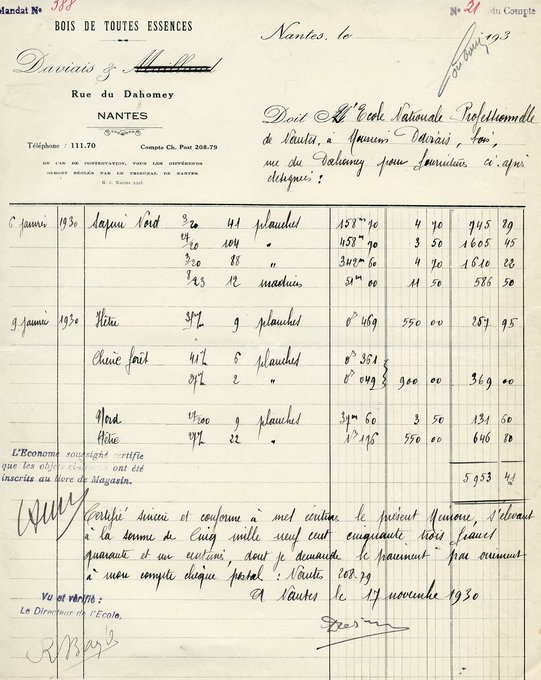 Mandat No 388
No 21 du Compte
BOIS DE TOUTES ESSENCES
Nantes, le 193
Daviais & Maillard
Rue du Dahomey
NANTES
Téléphone : 111.70 Compte Ch. Post 208.79
EN CAS DE CONTESTATION, TOUS LES DIFFÉRENDS
SERONT RÉGLÉS PAR LE TRIBUNAL DE NANTES
R. C. Nantes
Doit l'Ecole Nationale Professionnelle
de Nantes, à Monsieur Daviais, bois,
rue du Dahomey pour fournitures ci-après
désignées :
6 janvier 1930 Sapin Nord 3/20 41 planches 158m 70 4 70 745 89
27/20 104 " 458m 70 3 50 1605 45
3/20 88 " 342m 60 4 70 1610 22
8/23 12 madriers 51m 00 11 50 586 50
9 janvier 1930 Hêtre 9 planches 0 469 550 00 257 95
Chêne forêt 6 planches 0 361
2 " 0 049 900 00 369 00
Nord 27/200 9 planches 37m 60 3 50 131 60
Hêtre 22 " 1 176 550 00 646 80
5953 41
L'Econome soussigné certifie
que les objets ci-dessus ont été
inscrits au livre de Magasin.
Certifié sincère et conforme à mes écritures le présent Mémoire, s'élevant
à la somme de Cinq mille neuf cent cinquante trois francs
quarante et un centimes, dont je demande le paiement par virement
à mon compte chèque postal : Nantes 208.79
A Nantes le 17 novembre 1930
Vu et vérifié :
Le Directeur de l'Ecole,